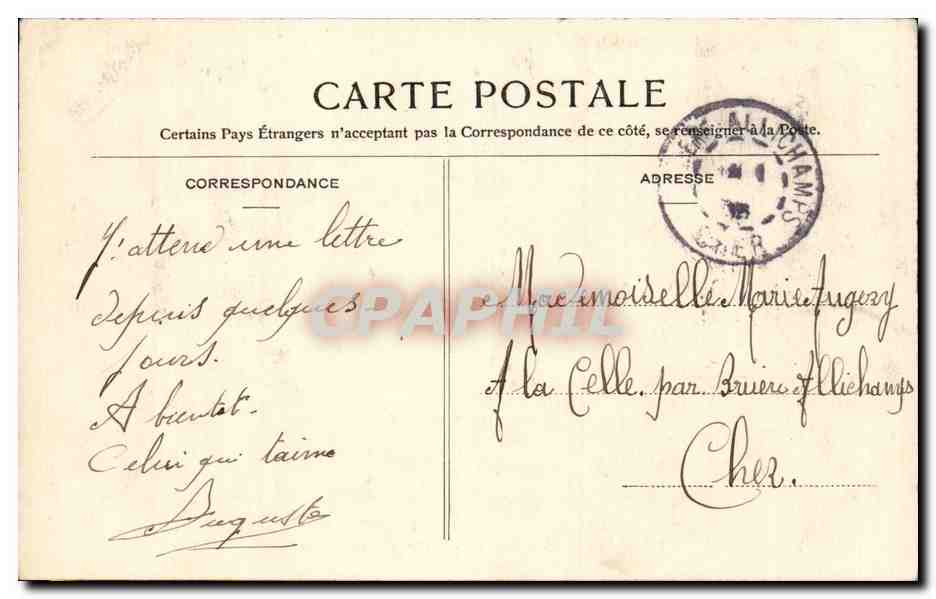 CARTE POSTALE
Certains Pays Étrangers n'acceptant pas la Correspondance de ce côté, se renseigner à la Poste.
CORRESPONDANCE
J'attend une lettre
depuis quelques
jours.
A bientot.
Celui qui t'aime
Auguste
ADRESSE
ALLICHAMPS
CHER
Mademoiselle Marie Augezy
A la Celle. par Bruère Allichamps
Cher.
CPAPHIL